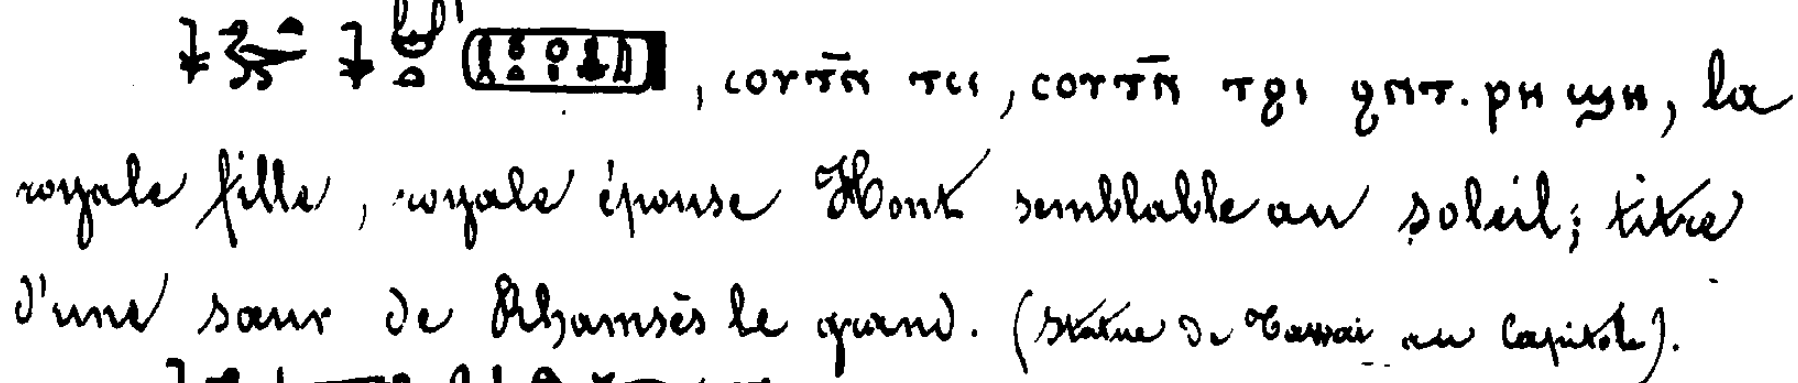 , ⲥⲟⲩⲧⲛ̄ ⲧⲥⲓ, ⲥⲟⲩⲧⲛ̄ ϩⲛⲧ. ⲣⲏ ϣⲏ, la
royale fille, royale épouse Hont semblable au soleil; titre
d'une sœur de Rhamsès le grand. (Statue de au Capitole).